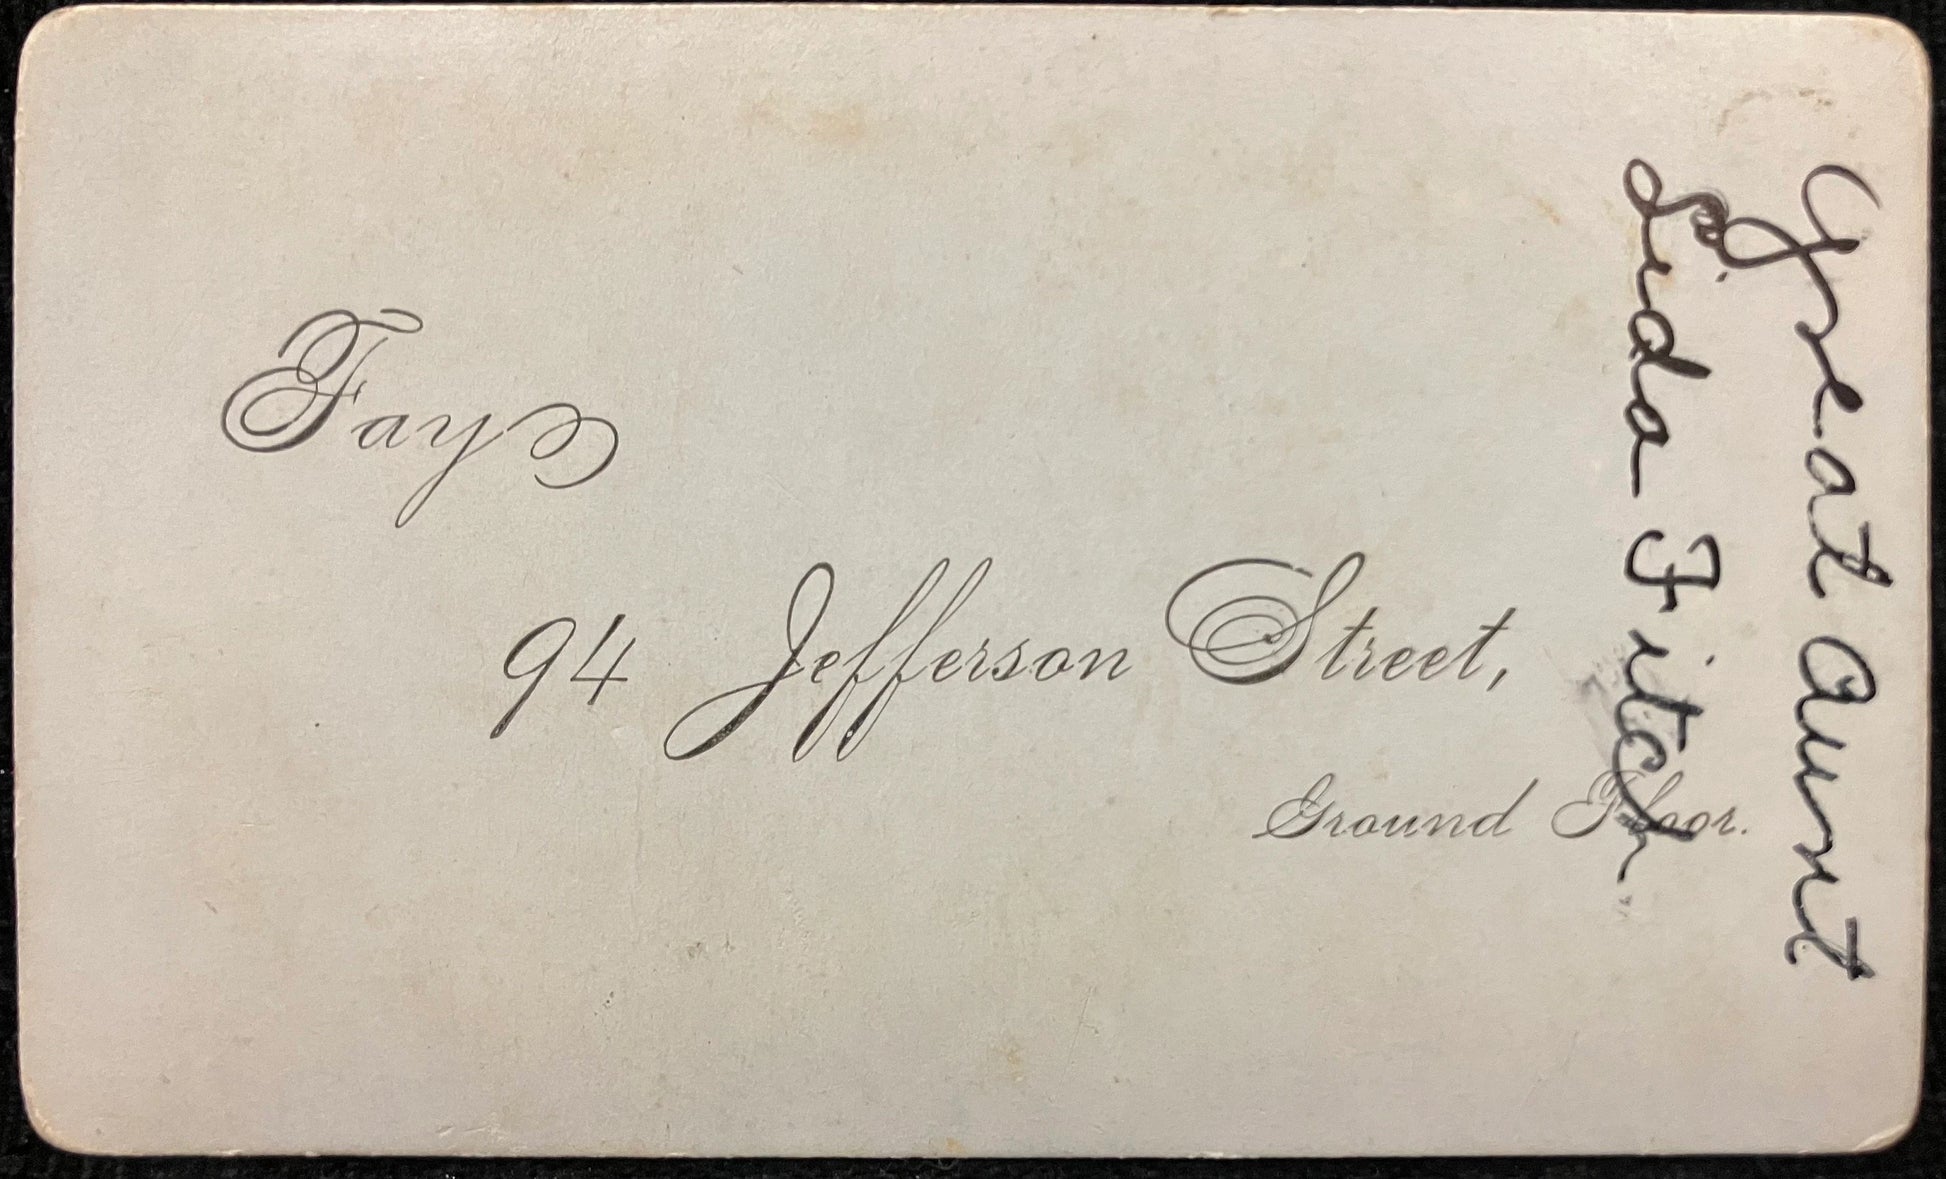 Fay
94 Jefferson Street,
Ground Floor.
Great Aunt
Lida Fitch